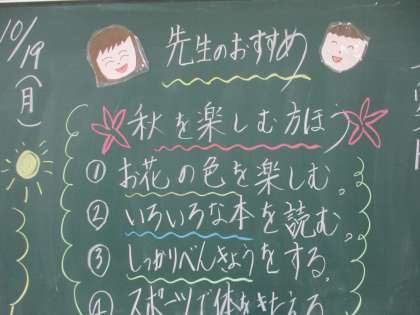 10/19(月)
先生のおすすめ
秋を楽しむ方ほう
①お花の色を楽しむ。
②いろいろな本を読む。
③しっかりべんきょうをする。
④スポーツで体をきたえる